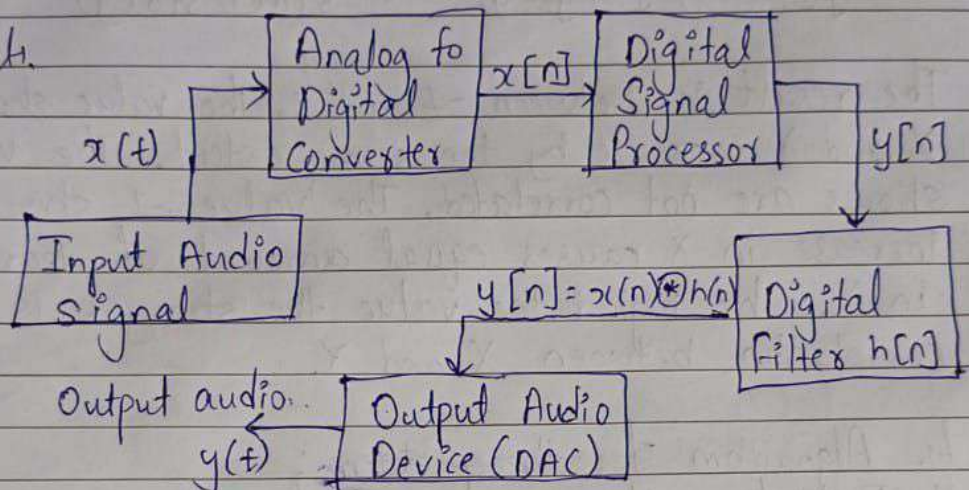 h.
Analog to
Digital
Converter
x[n]
Digital
Signal
Processor
x(t)
y[n]
Input Audio
signal
y[n]=x(n)⊛h(n)
Digital
Filter h[n]
Output audio.
y(t)
Output Audio
Device (DAC)